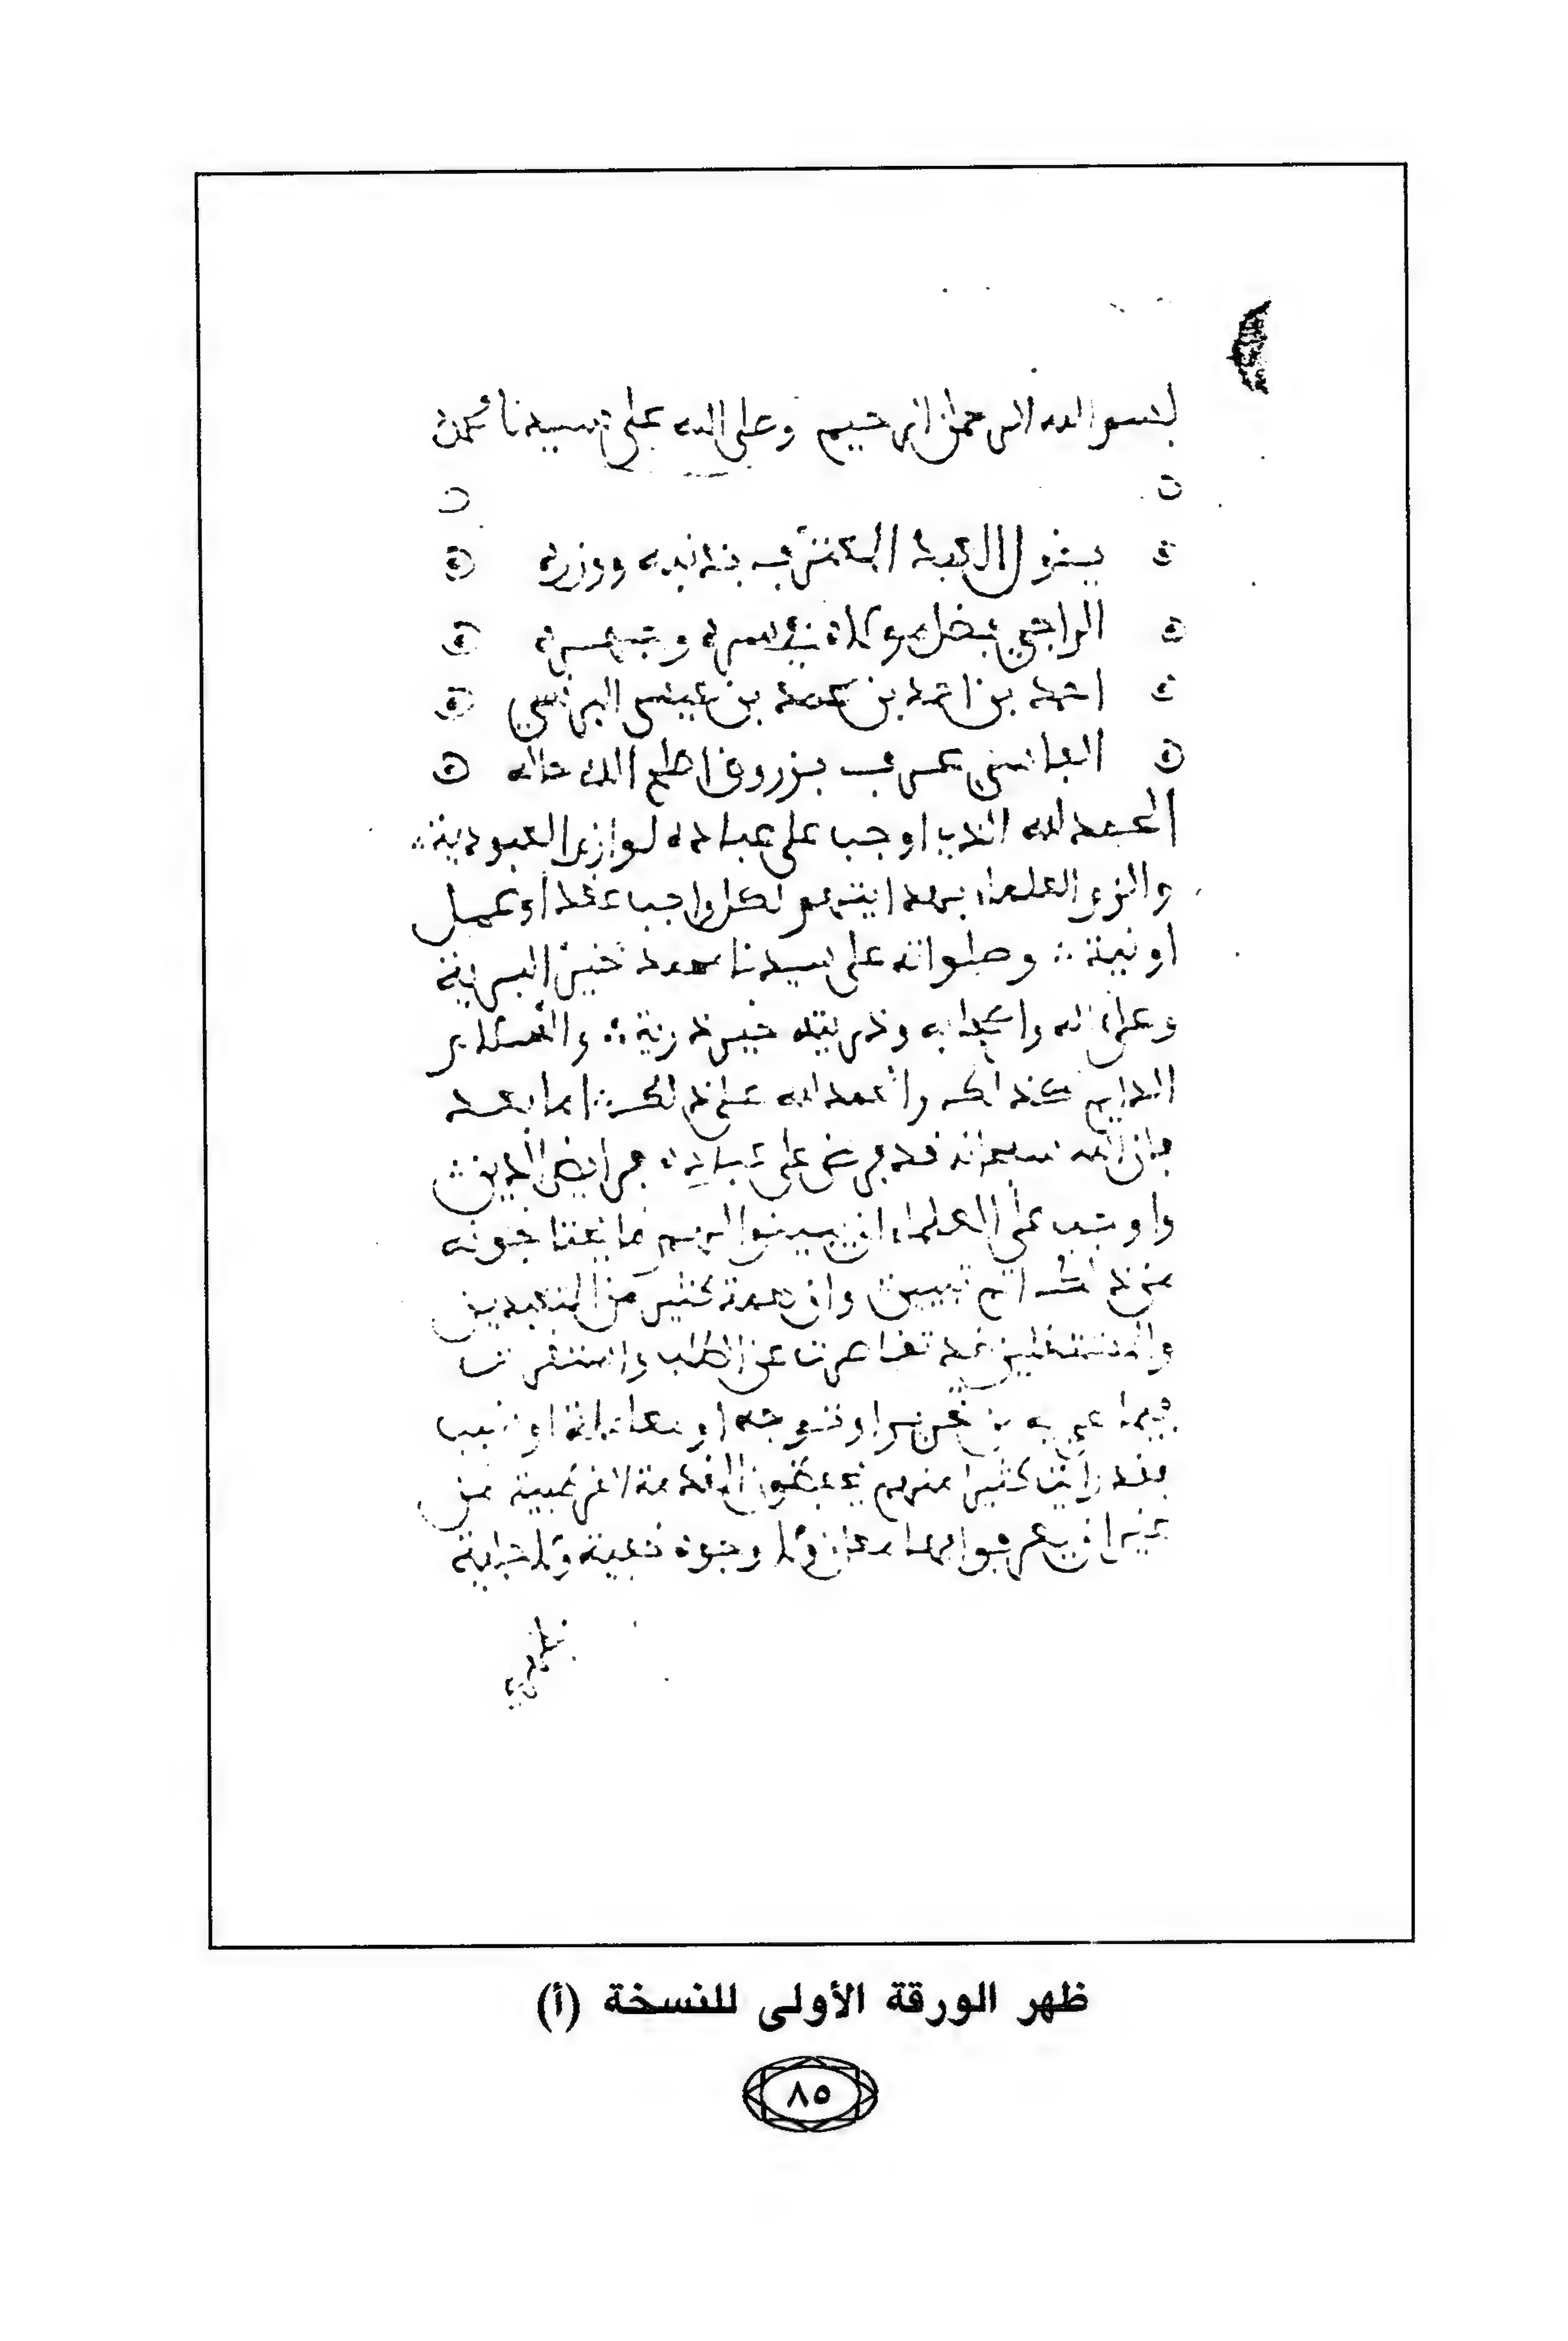 بسم الله الرحمن الرحيم وصلى الله على سيدنا محمد
يقول العبد المعترف بذنبه ووزره
الراجي فضل مولاه في سره وجهره
احمد بن احمد بن محمد بن عيسى البرنسي
الفاسي عرف بزروق اصلح الله حاله
الحمد لله الذي اوجب على عباده لوازم العبودية
والزم العلماء بهدايتهم لكل واجب عقد او عمل
او نية وصلواته على سيدنا محمد خير البرية
وعلى اله واصحابه وذريته خير ذرية والسلام
الدايم كذلك والحمد لله على ذلك اما بعد
فان الله سبحانه قد فرض على عباده فرايض الدين
واوجب على العلماء ان يبينوا لهم ما يحتاجونه
من ذلك اتم تبيين وان همة كثير من المتعبدين
والمشتغلين قد تقاصرت عن الطلب واستقرت
فيما هي به من او توجه او معاملة او
فقد رايت كثيرا منهم يحفظون المقدمة القرطبية من
غير ان يعرفوا لها معان ولا وجوه فقهية ولا
ظهر الورقة الأولى للنسخة (أ)
٨٥